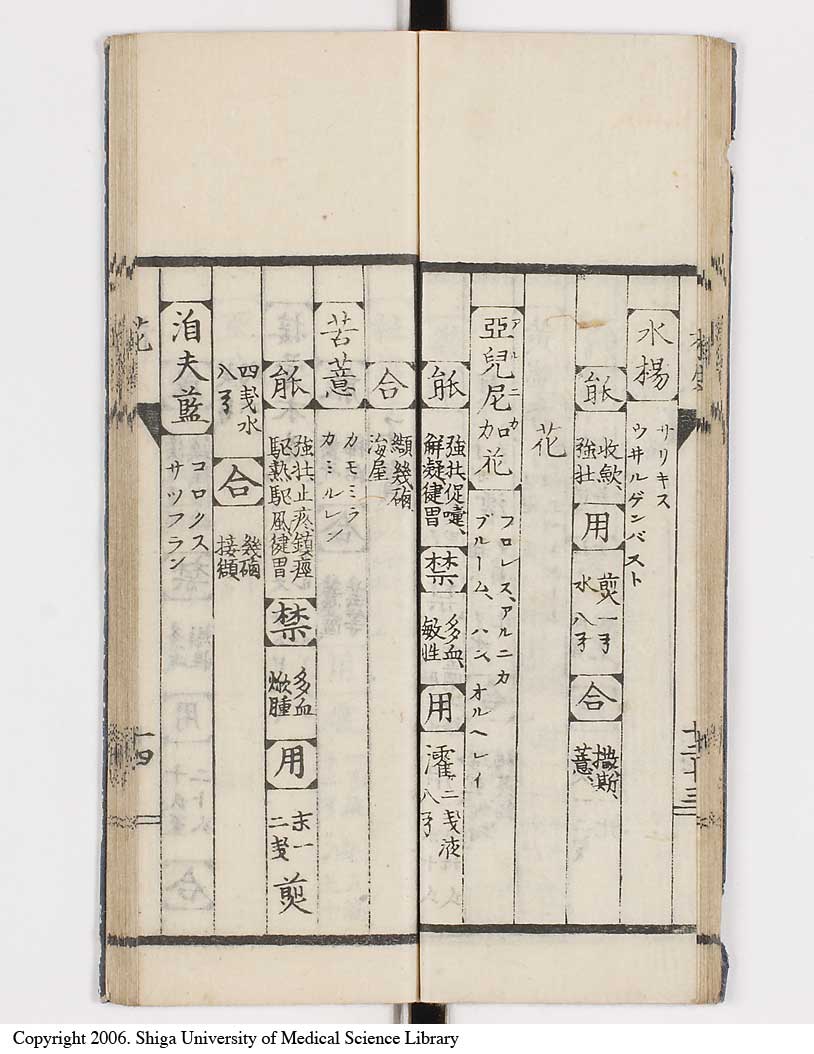 水楊
サリキス
ウヰルゲンバスト
能
收歛、
強壮
用
煎一ヲ
水八ヲ
合
撒斯、
薏、
花
亞兒尼加花
アルニカ
フロレス、アルニカ
ブルーム、ハン、オルヘレイ
能
強壮、促嚏、
解凝、健胃
禁
多血、
敏性
用
濳二戔液
八ヲ
合
纈、幾、硇
海、屋
苦薏
カモミラ
カミルレン
能
強壮、止疼、鎮痙
駆熱、駆風、健胃
禁
多血
焮腫
用
末一
二戔
煎
四戔水
八ヲ
合
幾、硇
接、纈
泊夫藍
コロクス
サツフラン
花
十四
Copyright 2006. Shiga University of Medical Science Library